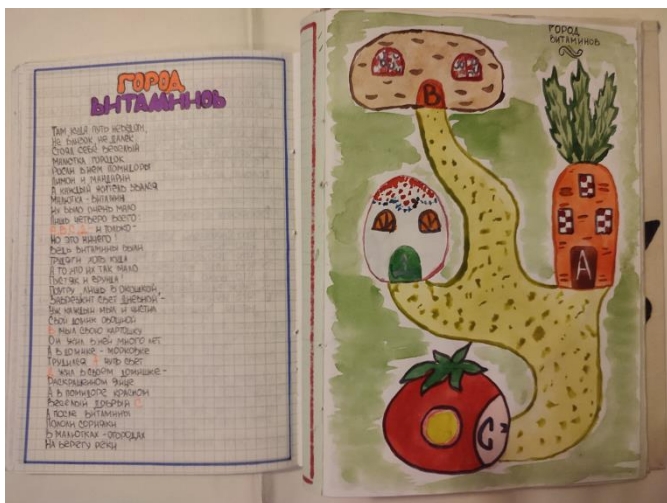 ГОРОД
ВИТАМИНОВ
Там, куда путь неведом,
Не низок, не далек,
Стоял себе веселый
Малютка городок
Росли в нем помидоры
Лимон и мандарин
А каждый житель звался
Малютка - витамин
Их было очень мало
Лишь четверо всего
А, В, С, Д - и только -
Но это ничего!
Ведь витамины были
Трудяги хоть куда
А то что их так мало
Пустяк и ерунда!
Поутру, лишь в окошках
Забрезжит свет дневной -
Уж каждый мыл и чистил
Свой домик овощной
В мыл свою картошку
Он жил в ней много лет
А в домике - морковке
Трудился А чуть свет
Д жил в своём домишке -
Раскрашенном яйце
А в помидоре красном
Веселый добрый С
А после витамины
Пололи сорняки
В малютках - огородах
На берегу реки
ГОРОД
ВИТАМИНОВ
В
А
Д
С